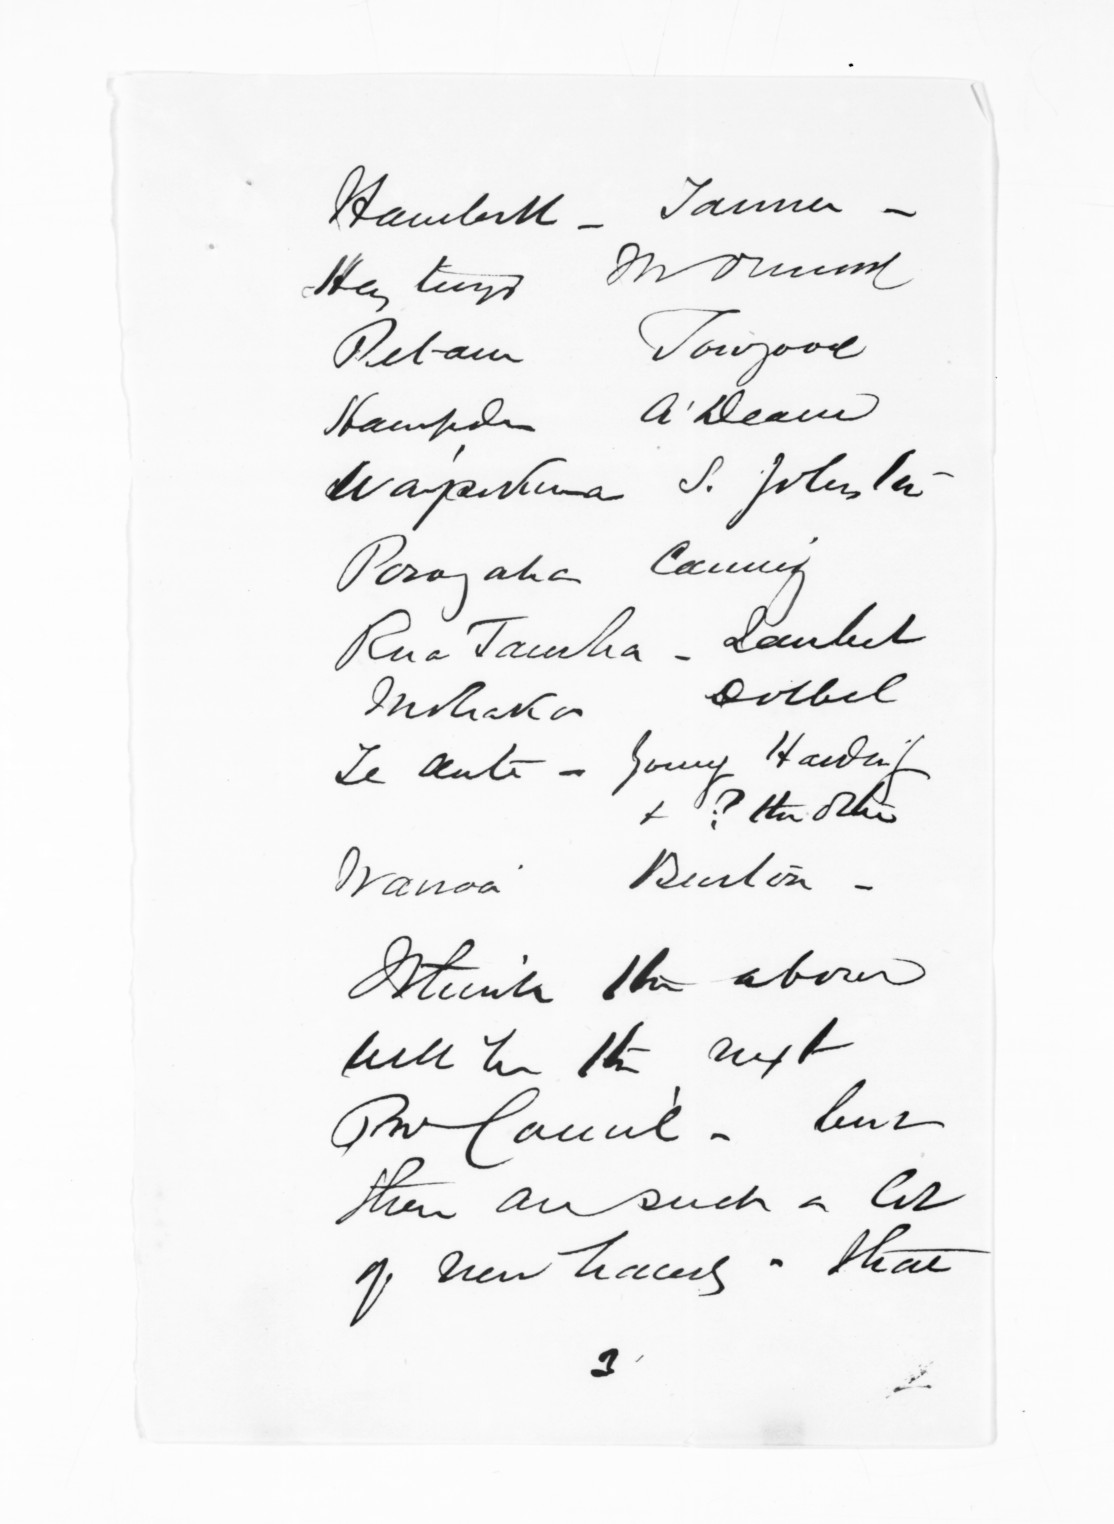 Havelock - Tanner -
Hastings McOrmond
Petane Towgood
Hampden A'Deane
Waipukurau S. Johnston
Porangahau Canning
Rua Taniwha - Lambert
Mohaka Dolbel
Te Aute - Young Harding
+ ? Another
Wairoa Burton -
I think the above
will be the next
Prov Council - but
there are such a lot
of new hands - that
3